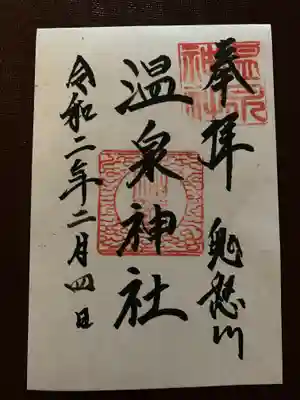 奉拝 鬼怒川
温泉神社
令和二年二月四日
温泉
神社